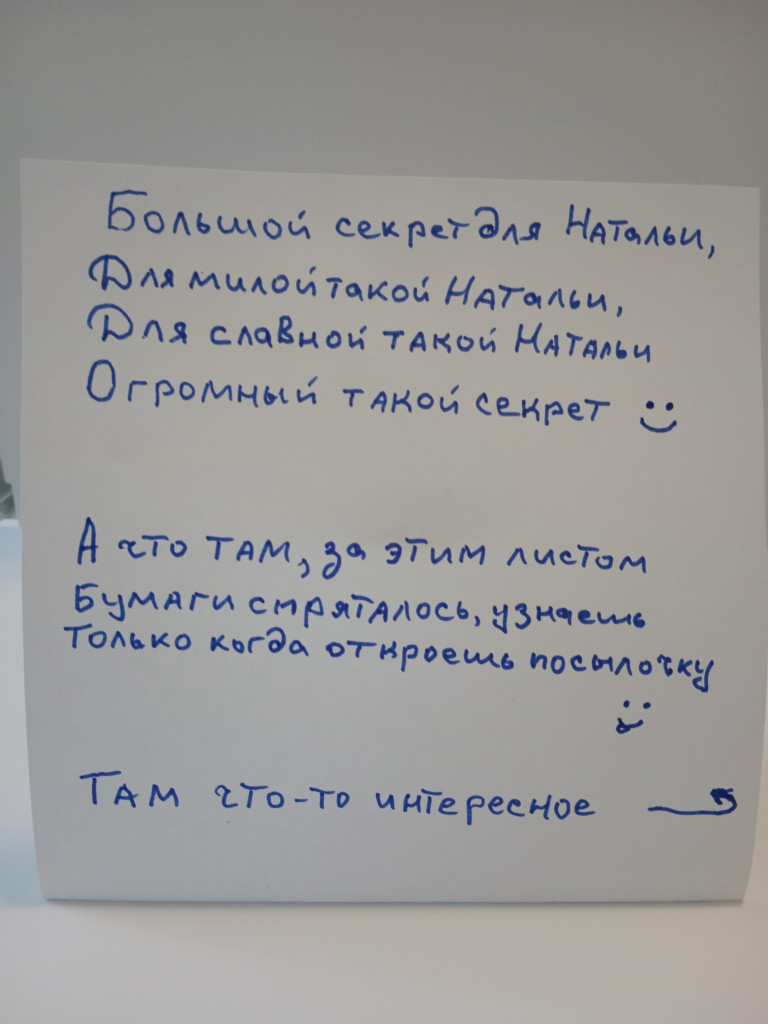 Большой секрет для Натальи,
Для милой такой Натальи,
Для славной такой Натальи
Огромный такой секрет
А что там, за этим листом
бумаги спряталось, узнаешь
только когда откроешь посылочку
Там что-то интересное